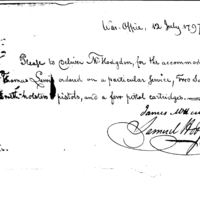 War-Office, 12 July 1797
Please to deliver Mr Hodgdon, for the accommod
Thomas Lewis ordered on a particular service, Two
holster pistols, and a few pistol cartridges.
James
Samuel Ho